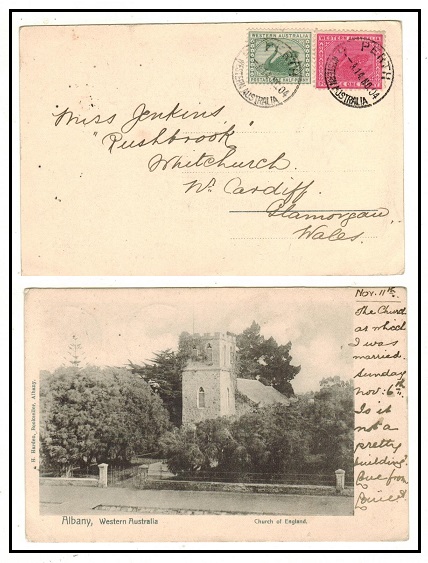 WESTERN AUSTRALIA
POSTAGE HALF PENNY
WESTERN AUSTRALIA
PERTH
WESTERN AUSTRALIA
04
PERTH
WESTERN AUSTRALIA
04
Miss Jenkins
"Rushbrook"
Whitchurch.
Nr. Cardiff.
Glamorgan,
Wales.
Nov. 11th.
The Church
at which
I was
married.
Sunday
Nov: 6th.
Is it
not a
pretty
building?
from
Albany, Western Australia
Church of England.
Bookseller, Albany.